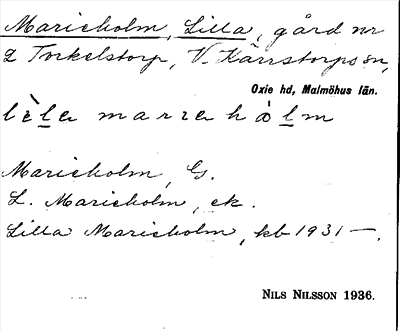 Marieholm, Lilla, gård nr
2 Torkelstorp, V. Kärrstorps sn,
Oxie hd, Malmöhus län.
lèla marrehòlm
Marieholm, Gs.
L. Marieholm, ek.
Lilla Marieholm, kb 1931 —.
NILS NILSSON 1936.